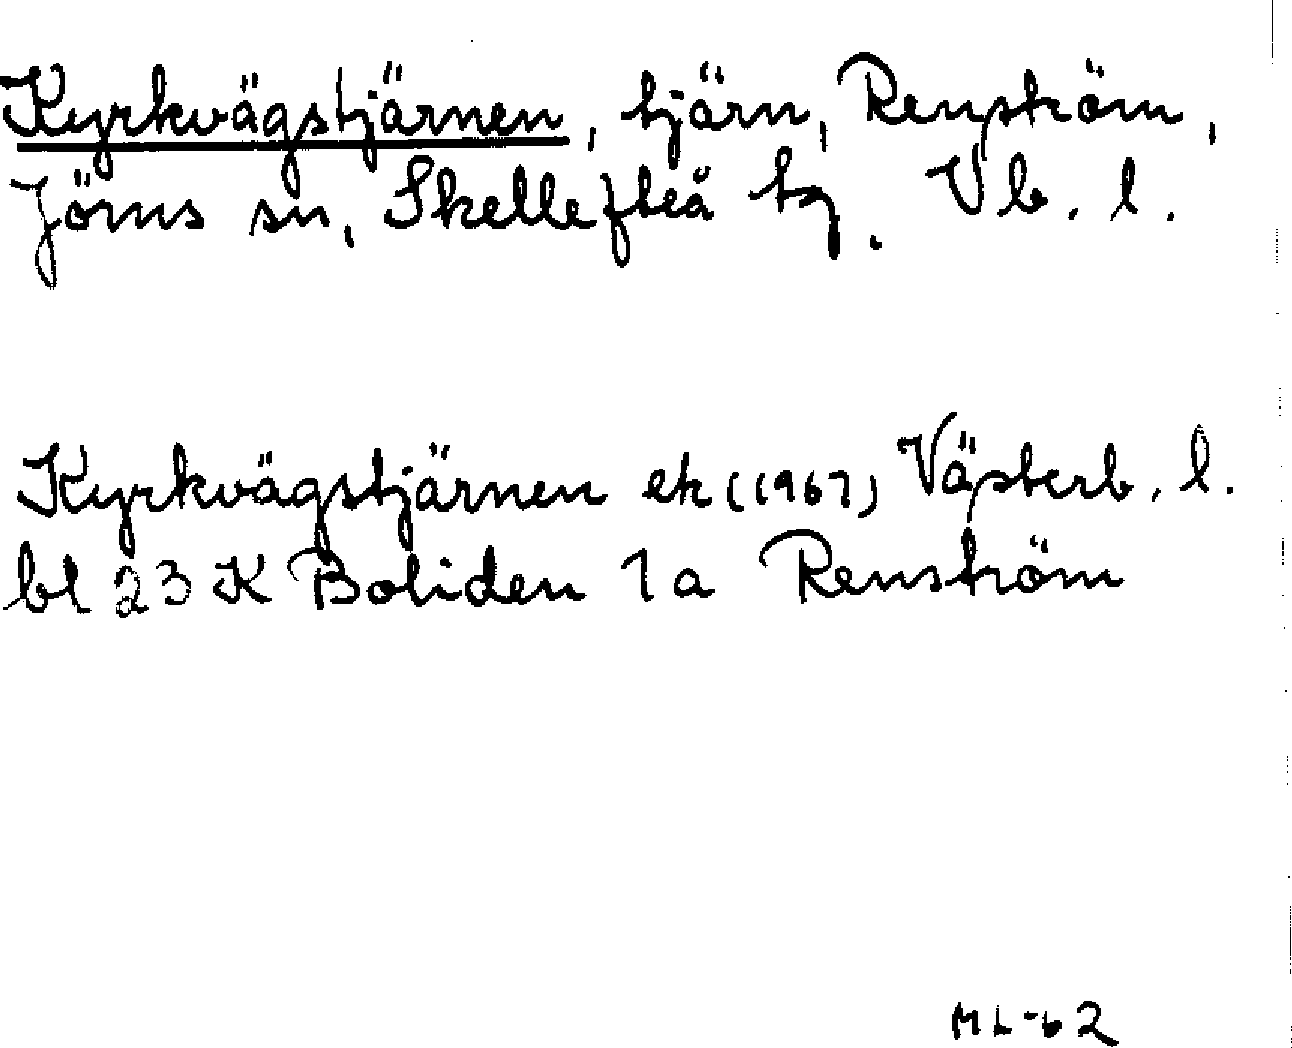 Kyrkvägstjärnen, tjärn, Renström,
Jörns sn, Skellefteå tg. Vb. l.
Kyrkvägstjärnen ek (1967) Västerb. l.
bl 23 K Boliden 1a Renström